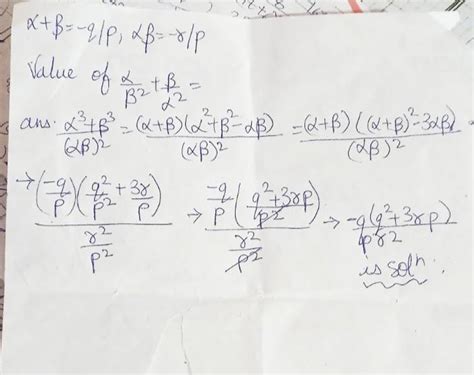 α+β=-q/p, αβ=-r/p
Value of α/β² + β/α² =
ans: (α³+β³)/(αβ)² = (α+β)(α²+β²-αβ)/(αβ)² = (α+β)((α+β)²-3αβ)/(αβ)²
→ (-q/p)(q²/p² + 3r/p)/(r²/p²) → -q/p((q²+3rp)/p²)/(r²/p²) → -q(q²+3rp)/pr²
is solⁿ.